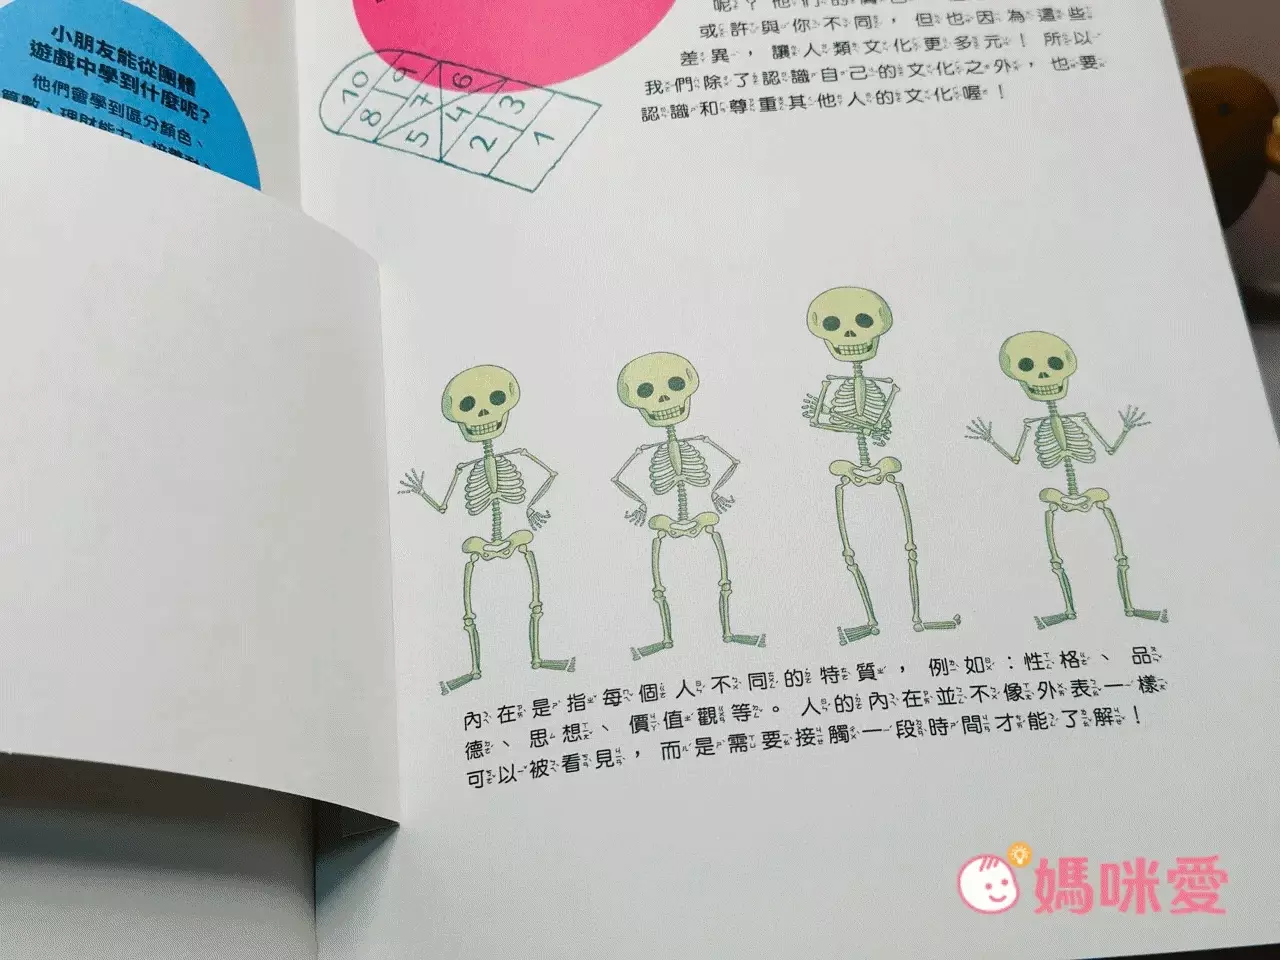 小朋友能從團體
遊戲中學到什麼呢?
他們會學到區分顏色、
算數、理財能力、
10 9 8 7 6 5 4 3 2 1
或許與你不同，但也因為這些
差異，讓人類文化更多元！所以
我們除了認識自己的文化之外，也要
認識和尊重其他人的文化喔！
內在是指每個人不同的特質，例如：性格、品
德、思想、價值觀等。人的內在並不像外表一樣
可以被看見，而是需要接觸一段時間才能了解！
媽咪愛